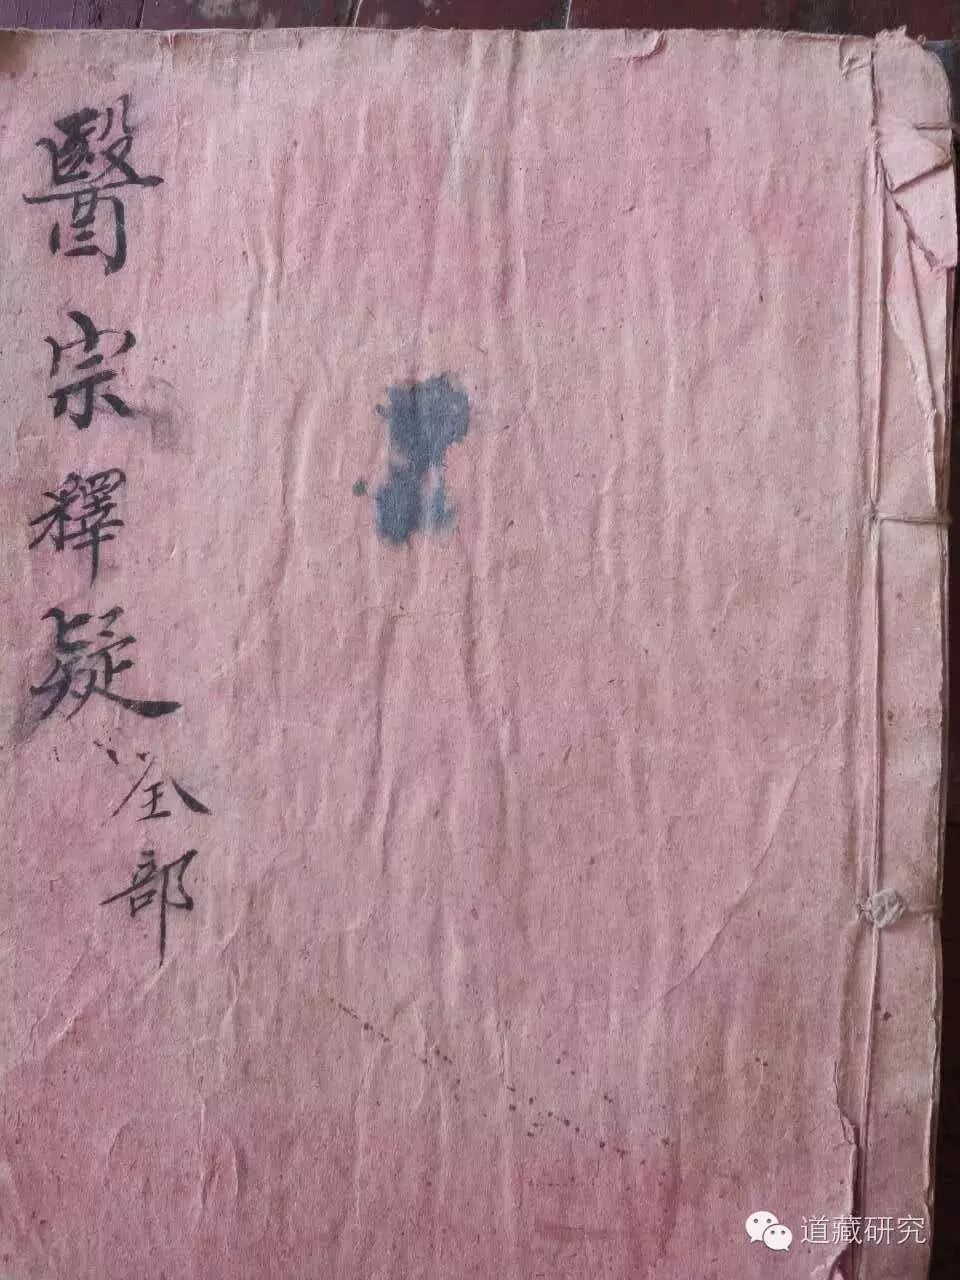 醫宗釋疑
全部
道藏研究